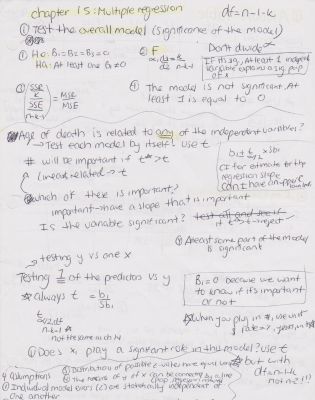 chapter 15: Multiple regression
df = n-1-k
① Test the overall model (significance of the model)
① Ho: B₁=B₂=B₃=0
Ha: At least one B≠0
② F
Don't divide α
If its sig., At least 1 indep variable explains a sig. prop of x
③ SSR/k / SSE/n-k-1 = MSR/MSE
④ The model is not significant, At least 1 is equal to 0
Age of death is related to any of the independent variables?
→ Test each model by itself! use t
# will be important if t* > t
(linear related → t
b₁ ± t α/2 × Sb₁
CI for estimate for the regression slope
which of these is important?
important → have a slope that is important
Is the variable significant?
④ At least some part of the model is significant
→ testing y vs one x
Testing 1 of the predictors vs y
☆ always t = b₁/Sb₁
B₁ = 0 because we want to know if it's important or not
t α/2, df
n-k-1
not the same as ch 14
① Does x₁ play a significant role in this model? use t
but with df = n-1-k
not n-2 (!)
4 Assumptions
② Distribution of possible
③ The means of y & x can be connected by a line
① Individual model errors (ε) are statistically independent of one another